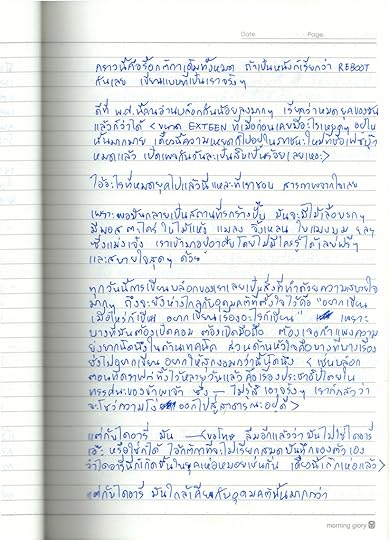 Date
Page.
คราวนี้คือรื้อกติกาเดิมทั้งหมด ถ้าเป็นหนังก็เรียกว่า REBOOT
กันเลย เขียนแบบที่เป็นเราจริงๆ
ดีที่ พ.ศ. นี้คนอ่านบล็อกกันน้อยลงมากๆ เรียกว่าหมดยุคของมัน
แล้วก็ว่าได้ < ขนาด EXTEEN ที่เมื่อก่อนเลยมีอะไรให้ดูๆ อยู่ใน
นั้นมากมาย เดี๋ยวนี้ความเหยดก็ไปอยู่ใน ใหม่ที่ชื่อเฟซบุ๊ค
หมดแล้ว เปิดเพจกันวันละเป็นสิบเป็นร้อยเลยเหอะ >
ไอ้อะไรที่หมดยุคไปแล้วนี่แหละที่เราชอบ สารภาพจากใจเลย
เพราะพอมันกลายเป็นสถานที่รกร้างปุ๊บ มันจะมีไม้เลื้อยรกๆ
มีมอส ตะไคร่ ใบไม้แห้ง แมลง จิ้งเหลน ใยแมงมุม ฯลฯ
ซึ่งแม่งเจ๋ง เราเข้ามาอยู่อาศัยโดยไม่มีใครรู้ได้เลยฟรีๆ
และสบายใจสุดๆ ด้วย
ทุกวันนี้การเขียนบล็อกของเราเลยเป็นสิ่งที่ทำด้วยความสบายใจ
มากๆ ถึงจะยังห่างไกลกับอุดมคติที่ตั้งใจไว้คือ "อยากเขียน
เมื่อไหร่ก็เขียน อยากเขียนเรื่องอะไรก็เขียน" เพราะ
บางทีมันต้องเปิดคอม ต้องเปิดมือถือ ต้องเจอกำแพงความ
ยุ่งยากนิดนึงในด้านเทคนิค ส่วนด้านหัวใจคือบางทีบางเรื่อง
ยังไม่อยากเขียน อยากให้ตกผลึกมากกว่านี้นิดนึง < เช่นบล็อก
ตอนที่ดราฟต์ทิ้งไว้หลายวันแล้ว คือเรื่องประชาธิปไตยใน
ทรรศนะของข้าพเจ้า ซึ่ง — ไม่รู้สิ เอาจริงๆ เรากลัวว่า
จะโชว์ความโง่ ออกไปสู่สาธารณะอยู่ดี >
แต่กับไดอารี่ มัน — ขอโทษ ลืมอีกแล้วว่ามันไม่ใช่ไดอารี่
เอ๊ะ หรือใช่ก็ได้ ไอ้กติกาที่จะไม่เรียกสมุดบันทึกของตัวเอง
ว่าไดอารี่นี่ก็เกิดขึ้นในยุคเห่อหมอยเช่นกัน เดี๋ยวนี้เลิกเห่อแล้ว >
แต่กับไดอารี่ มันใกล้เคียงกับอุดมคตินั้นมากกว่า
morning glory